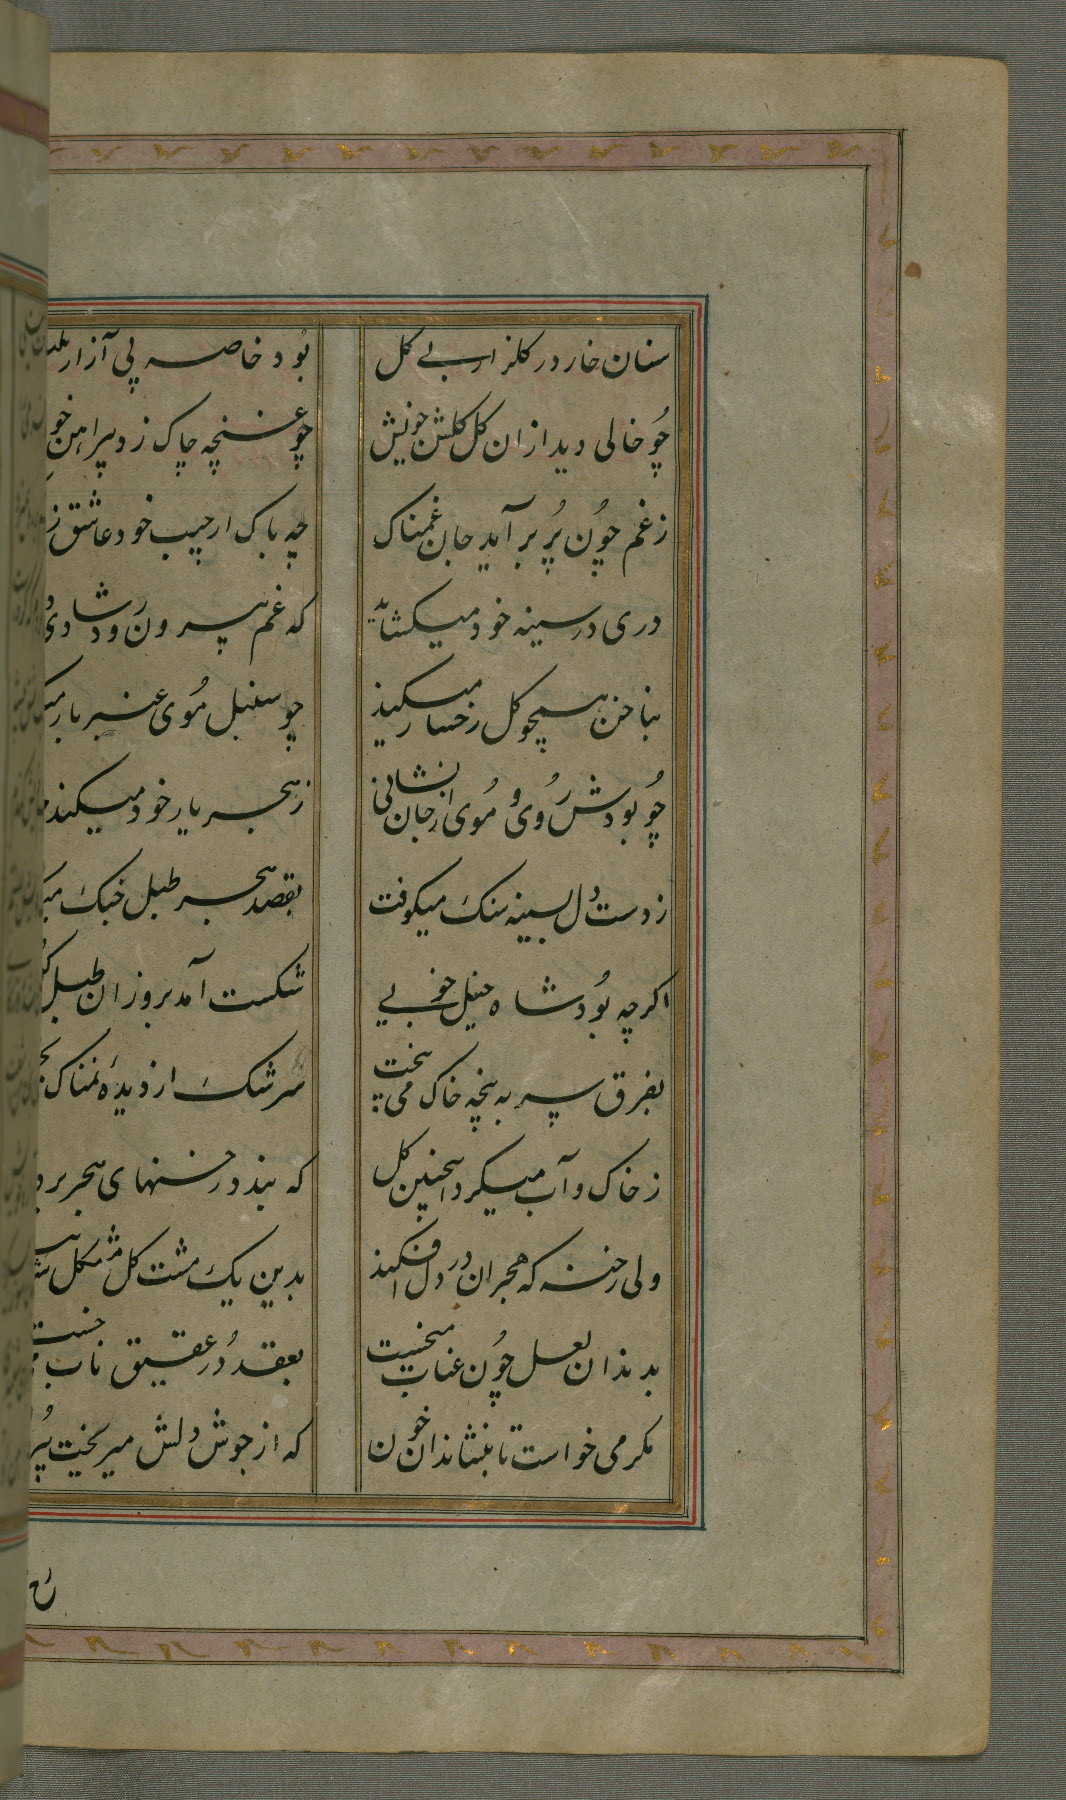 سنان خار در کلزار بے کل بود خاصه پی آزار
چو خالی دید از ان کل کلشن خویش چو غنچه چاک زد پیراهن
ز غم چون پر برآید جان غمناک چه باک ار جیب خود عاشق
دری در سینه خود میکشاید که غم بیرون رود شادی
بناخن همچو کل رخسار میکند چو سنبل موی عنبر بار
چو بودش روی و موی از جان نشانی ز هجر یار خود میکند
ز دست دل بسینه سنک میکوفت بقصد هجر طبل جنک
اکرچه بود شاه خیل خوبے شکست آمد بروز ان طبل
بفرق سر به پنجه خاک می بیخت سرشک از دیده نمناک
ز خاک و آب میکرد اینچنین کل که بندد رخنهای هجر بر
ولی رخنه که هجران در دل افکند بدین یک مشت کل مشکل
بدندان لعل چون عناب میخست بعقد در عقیق ناب
مکر می خواست تا بنشاند ان خون که از جوش دلش میریخت